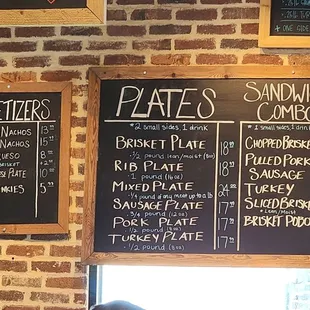 ETIZERS
NACHOS 13
NACHOS 15
UESO 8
SE PLATE 10
NKIES 5
PLATES
2 small sides, 1 drink
BRISKET PLATE 18
1/2 pound lean/moist (8oz)
RIB PLATE 18
1 pound (16 oz)
MIXED PLATE 24
1/4 pound of any meat up to a lb
SAUSAGE PLATE 17
3/4 pound (12oz)
PORK PLATE 17
1/2 pound (8oz)
TURKEY PLATE 17
1/2 pound (8oz)
SANDWI
COMBO
1 small side, 1 drin
CHOPPED BRISKE
PULLED PORK
SAUSAGE
TURKEY
SLICED BRISKE
Lean/Moist
BRISKET POBO
ONE SID